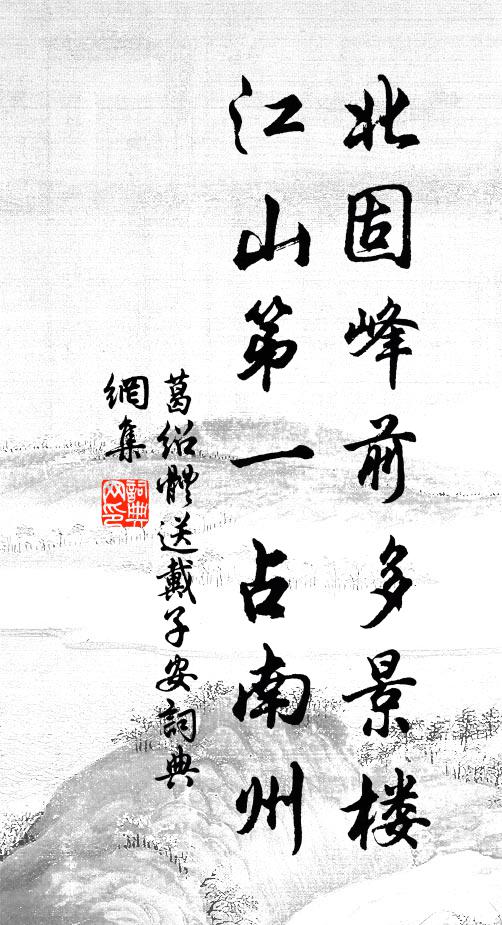 北固峰前多景楼
江山第一占南州
葛绍體送戴子安詞典
網集
詞典
网印